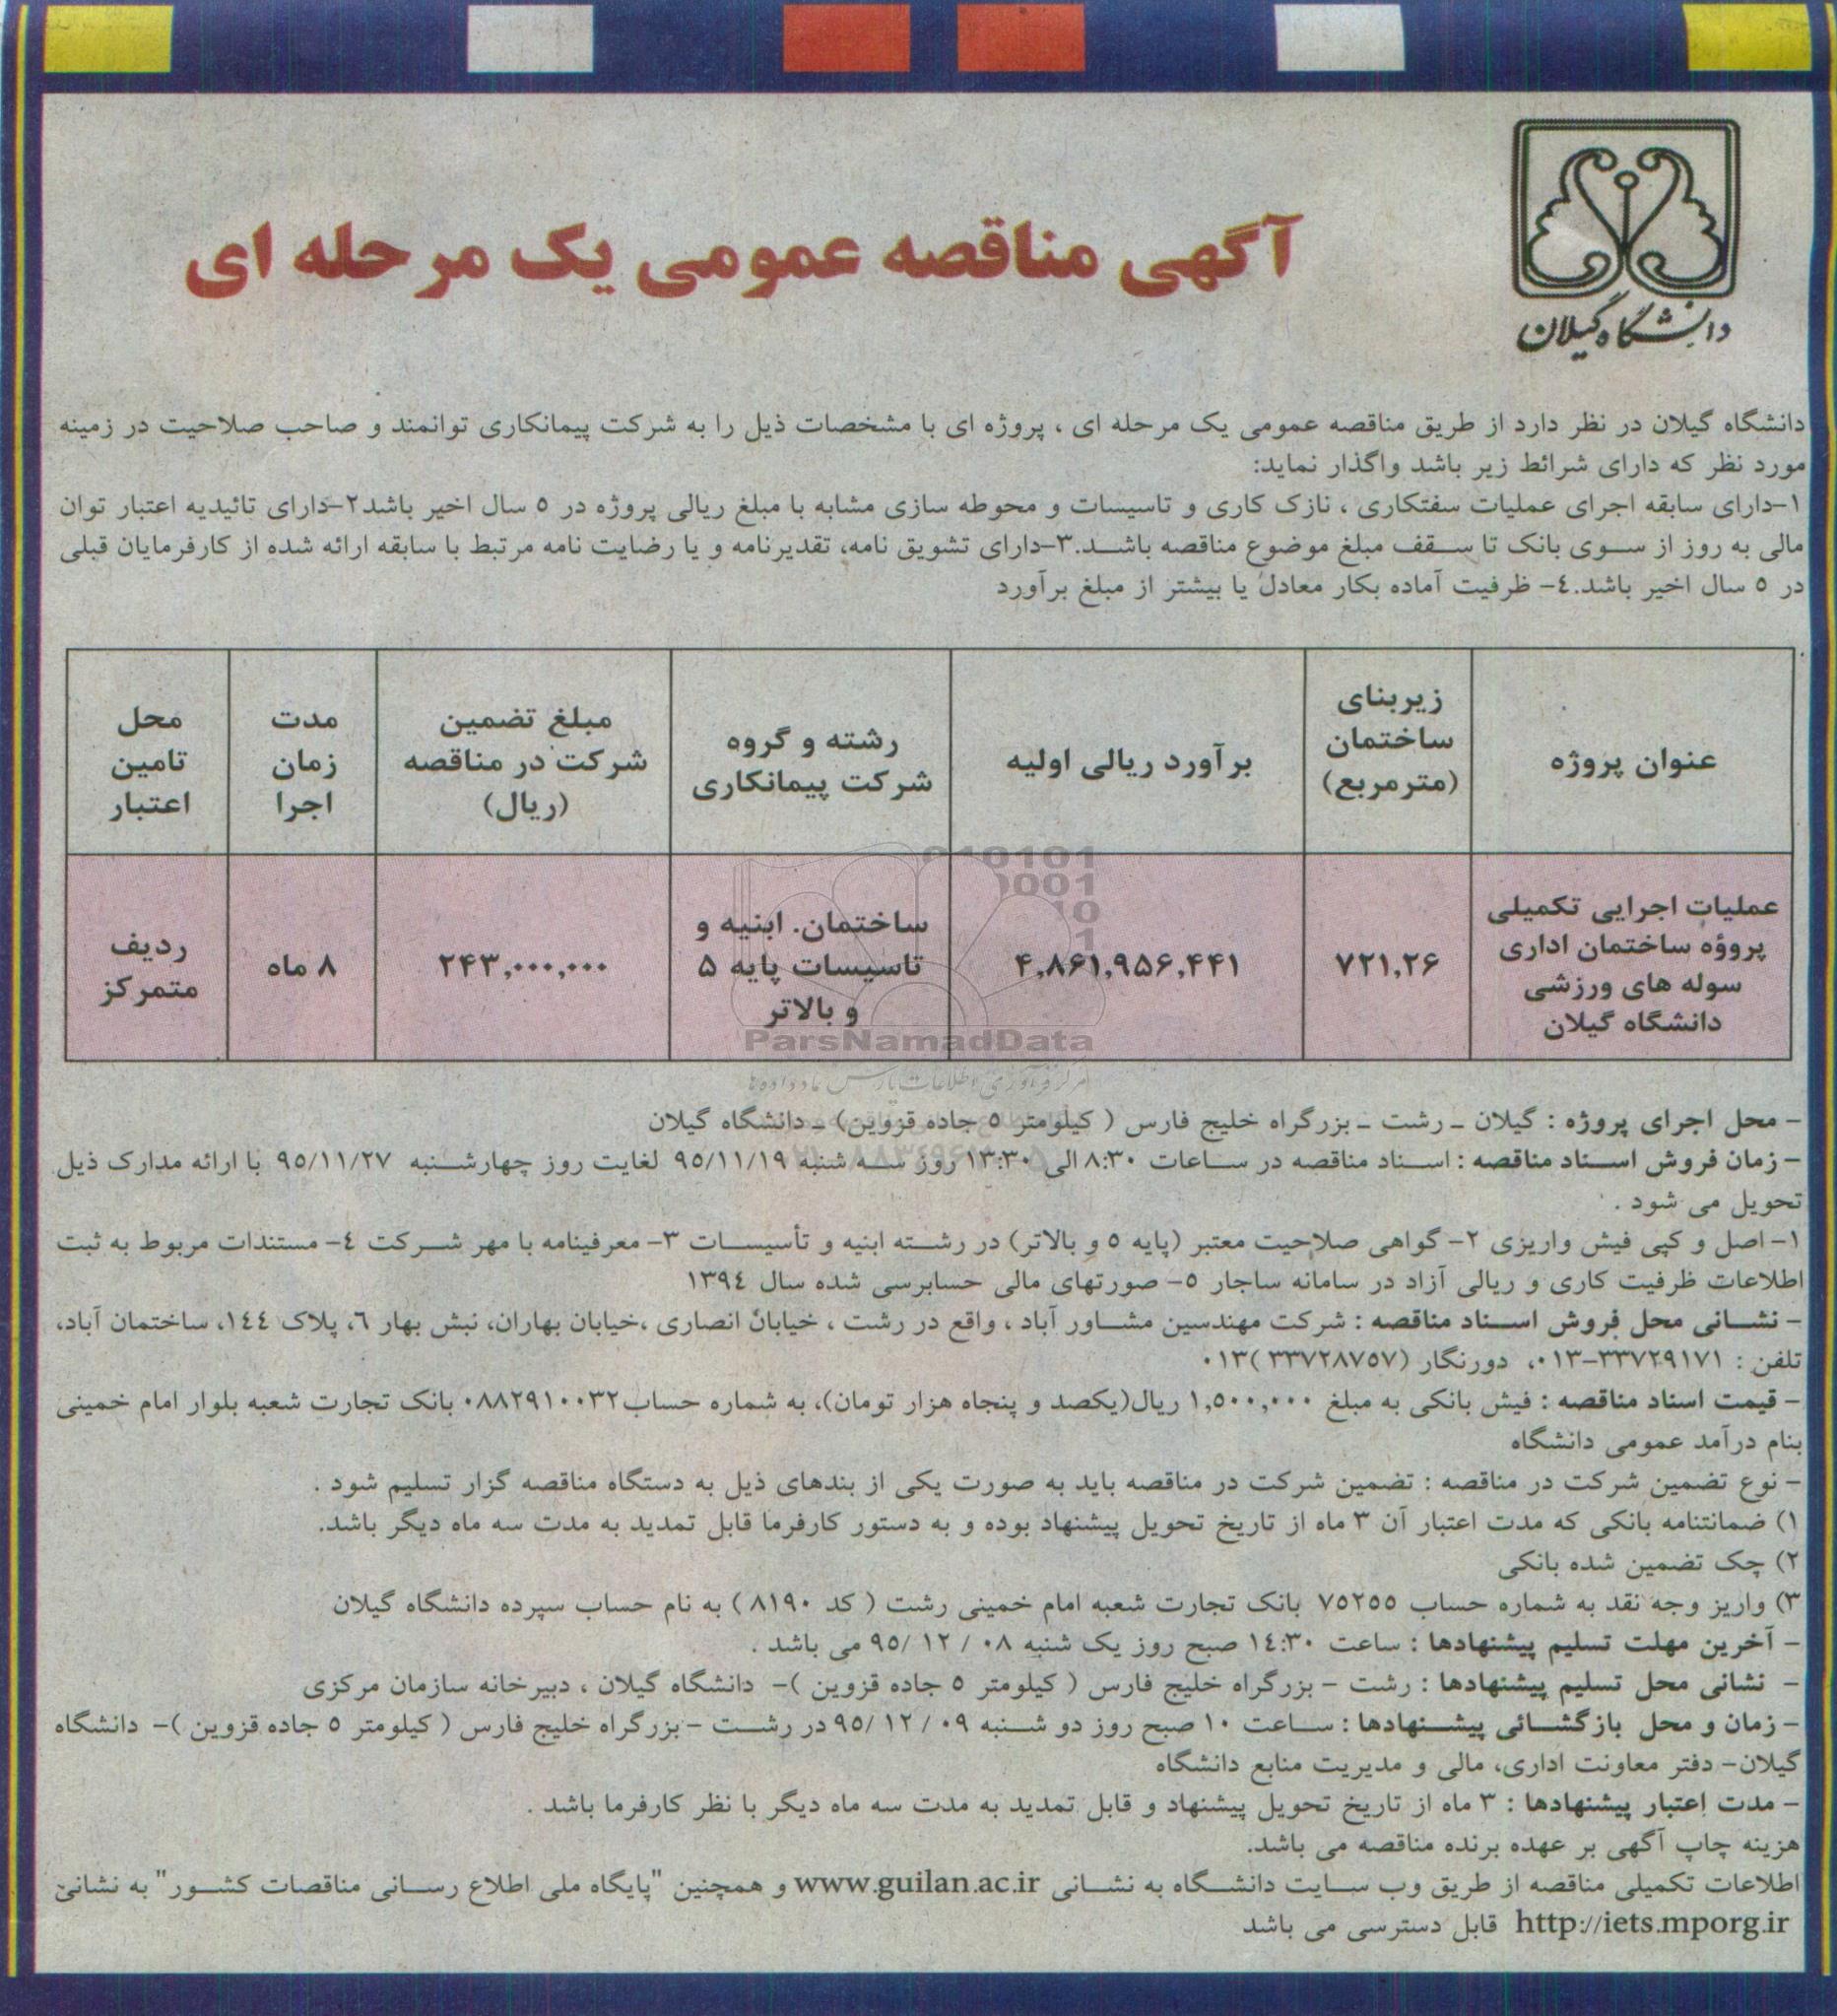 دانشگاه گیلان
آگهی مناقصه عمومی یک مرحله ای
دانشگاه گیلان در نظر دارد از طریق مناقصه عمومی یک مرحله ای ، پروژه ای با مشخصات ذیل را به شرکت پیمانکاری توانمند و صاحب صلاحیت در زمینه
مورد نظر که دارای شرائط زیر باشد واگذار نماید:
۱-دارای سابقه اجرای عملیات سفتکاری ، نازک کاری و تاسیسات و محوطه سازی مشابه با مبلغ ریالی پروژه در ۵ سال اخیر باشد۲-دارای تائیدیه اعتبار توان
مالی به روز از سوی بانک تا سقف مبلغ موضوع مناقصه باشد.۳-دارای تشویق نامه، تقدیرنامه و یا رضایت نامه مرتبط با سابقه ارائه شده از کارفرمایان قبلی
در ۵ سال اخیر باشد.٤- ظرفیت آماده بکار معادل یا بیشتر از مبلغ برآورد
عنوان پروژه
زیربنای
ساختمان
(مترمربع)
برآورد ریالی اولیه
رشته و گروه
شرکت پیمانکاری
مبلغ تضمین
شرکت در مناقصه
(ریال)
مدت
زمان
اجرا
محل
تامین
اعتبار
عملیات اجرایی تکمیلی
پروژه ساختمان اداری
سوله های ورزشی
دانشگاه گیلان
۷۲۱,۲۶
۴,۸۶۱,۹۵۶,۴۴۱
ساختمان. ابنیه و
تاسیسات پایه ۵
و بالاتر
۲۴۳,۰۰۰,۰۰۰
۸ ماه
ردیف
متمرکز
ParsNamadData
- محل اجرای پروژه : گیلان ـ رشت ـ بزرگراه خلیج فارس ( کیلومتر ۵ جاده قزوین) ـ دانشگاه گیلان
- زمان فروش اسناد مناقصه : اسناد مناقصه در ساعات ۸:۳۰ الی ۱۳:۳۰ روز سه شنبه ۹۵/۱۱/۱۹ لغایت روز چهارشنبه ۹۵/۱۱/۲۷ با ارائه مدارک ذیل
تحویل می شود .
۱- اصل و کپی فیش واریزی ۲- گواهی صلاحیت معتبر (پایه ۵ و بالاتر) در رشته ابنیه و تأسیسات ۳- معرفینامه با مهر شرکت ٤- مستندات مربوط به ثبت
اطلاعات ظرفیت کاری و ریالی آزاد در سامانه ساجار ۵- صورتهای مالی حسابرسی شده سال ۱۳۹٤
- نشانی محل فروش اسناد مناقصه : شرکت مهندسین مشاور آباد ، واقع در رشت ، خیابان انصاری ،خیابان بهاران، نبش بهار ٦، پلاک ۱٤٤، ساختمان آباد،
تلفن : ۳۳۷۲۹۱۷۱-۰۱۳، دورنگار (۳۳۷۲۸۷۵۷ )۰۱۳
- قیمت اسناد مناقصه : فیش بانکی به مبلغ ۱,۵۰۰,۰۰۰ ریال(یکصد و پنجاه هزار تومان)، به شماره حساب۰۸۸۲۹۱۰۰۳۲ بانک تجارت شعبه بلوار امام خمینی
بنام درآمد عمومی دانشگاه
- نوع تضمین شرکت در مناقصه : تضمین شرکت در مناقصه باید به صورت یکی از بندهای ذیل به دستگاه مناقصه گزار تسلیم شود .
۱) ضمانتنامه بانکی که مدت اعتبار آن ۳ ماه از تاریخ تحویل پیشنهاد بوده و به دستور کارفرما قابل تمدید به مدت سه ماه دیگر باشد.
۲) چک تضمین شده بانکی
۳) واریز وجه نقد به شماره حساب ۷۵۲۵۵ بانک تجارت شعبه امام خمینی رشت ( کد ۸۱۹۰ ) به نام حساب سپرده دانشگاه گیلان
- آخرین مهلت تسلیم پیشنهادها : ساعت ۱٤:۳۰ صبح روز یک شنبه ۰۸ / ۱۲ /۹۵ می باشد .
- نشانی محل تسلیم پیشنهادها : رشت - بزرگراه خلیج فارس ( کیلومتر ۵ جاده قزوین )- دانشگاه گیلان ، دبیرخانه سازمان مرکزی
- زمان و محل بازگشائی پیشنهادها : ساعت ۱۰ صبح روز دو شنبه ۰۹ / ۱۲ /۹۵ در رشت - بزرگراه خلیج فارس ( کیلومتر ۵ جاده قزوین )- دانشگاه
گیلان- دفتر معاونت اداری، مالی و مدیریت منابع دانشگاه
- مدت اعتبار پیشنهادها : ۳ ماه از تاریخ تحویل پیشنهاد و قابل تمدید به مدت سه ماه دیگر با نظر کارفرما باشد .
هزینه چاپ آگهی بر عهده برنده مناقصه می باشد.
اطلاعات تکمیلی مناقصه از طریق وب سایت دانشگاه به نشانی www.guilan.ac.ir و همچنین "پایگاه ملی اطلاع رسانی مناقصات کشور" به نشانی
http://iets.mporg.ir قابل دسترسی می باشد